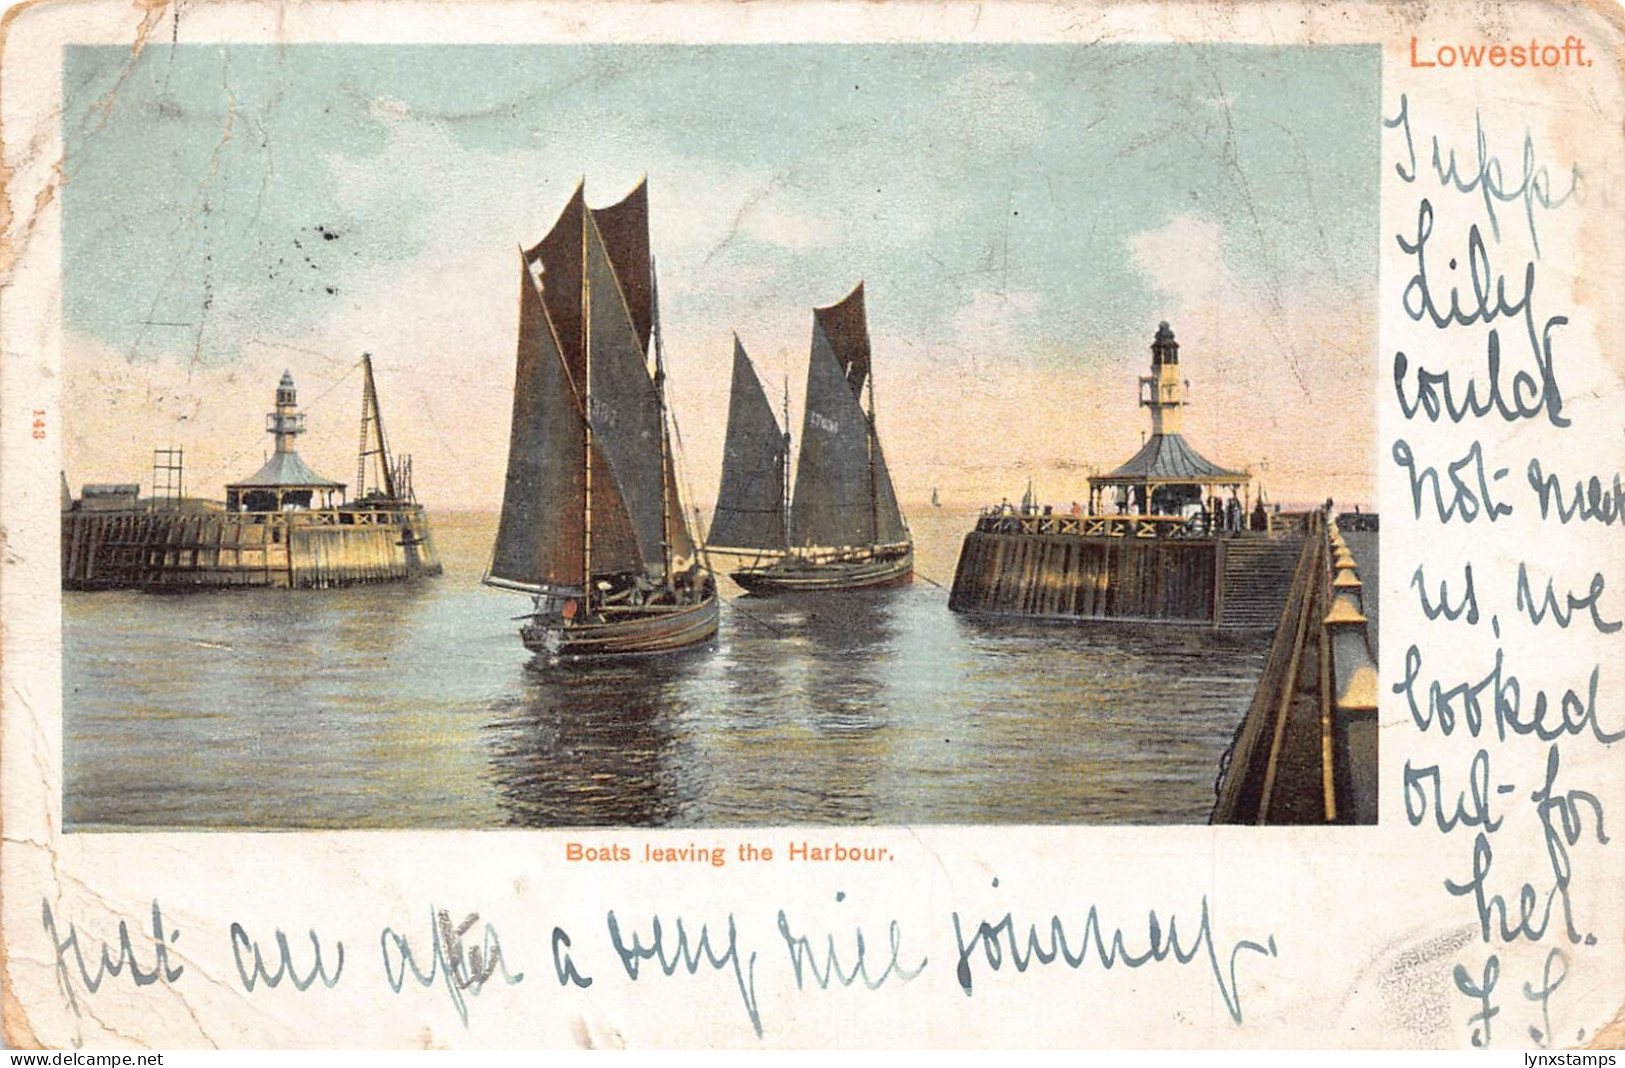 Lowestoft.
Suppose
Lily
could
not meet
us, we
looked
out for
her.
F. S.
143
Boats leaving the Harbour.
Just arr after a very nice journey.
www.delcampe.net
lynxstamps